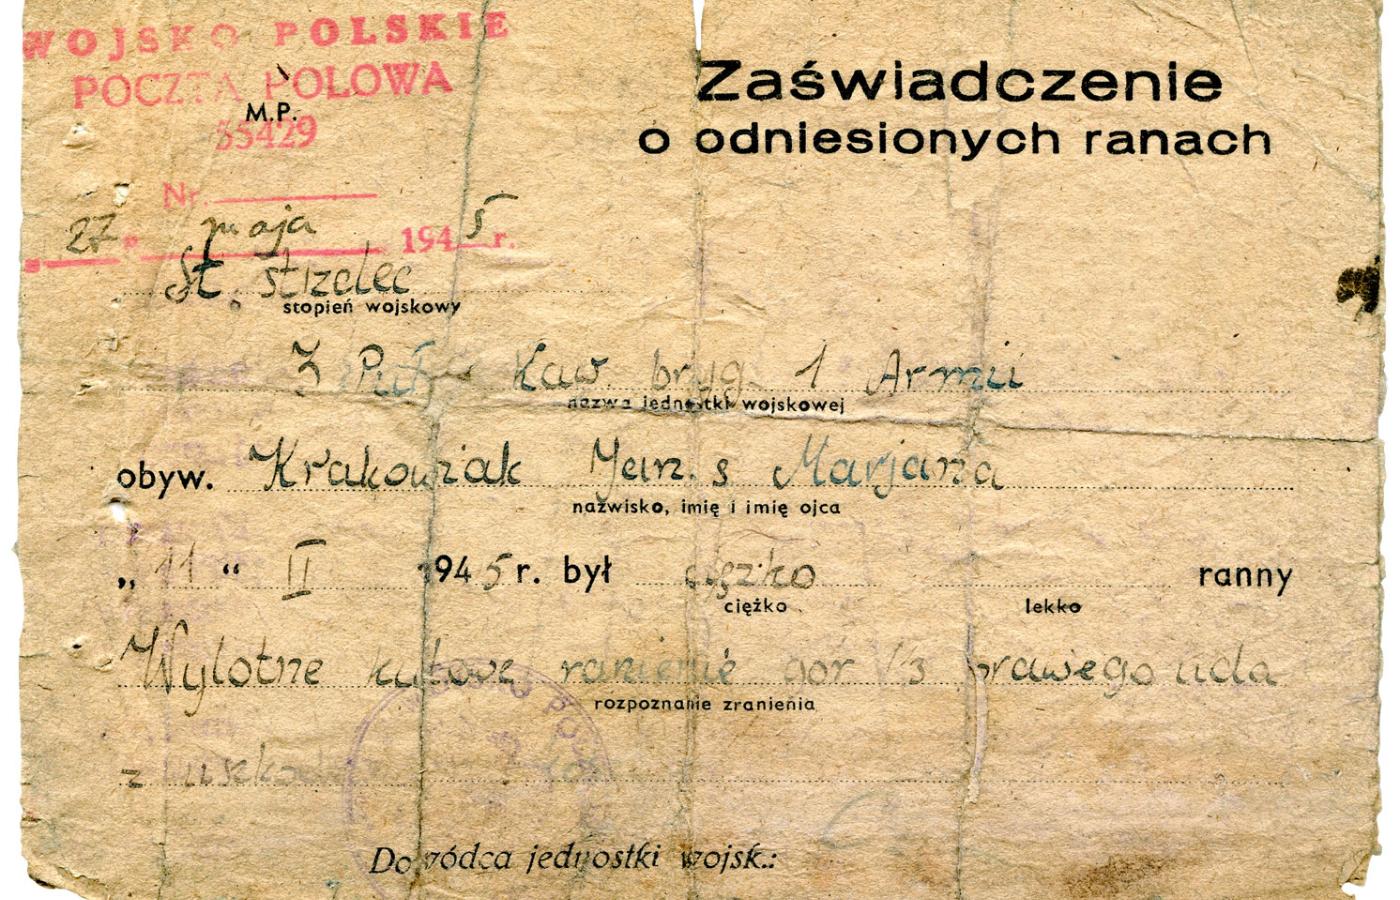 WOJSKO POLSKIE
POCZTA POLOWA
M.P.
55429
Zaświadczenie
o odniesionych ranach
Nr.
27 " maja 1945 r.
St. strzelec
stopień wojskowy
3 Kaw. bryg. 1 Armii
nazwa jednostki wojskowej
obyw. Krakowiak Jan. s Marjana
nazwisko, imię i imię ojca
„ 11 “ II 1945 r. był ciężko ranny
ciężko lekko
Wylotne kulowe ranienie gór 1/3 prawego uda
rozpoznanie zranienia
z
Dowódca jednostki wojsk.: